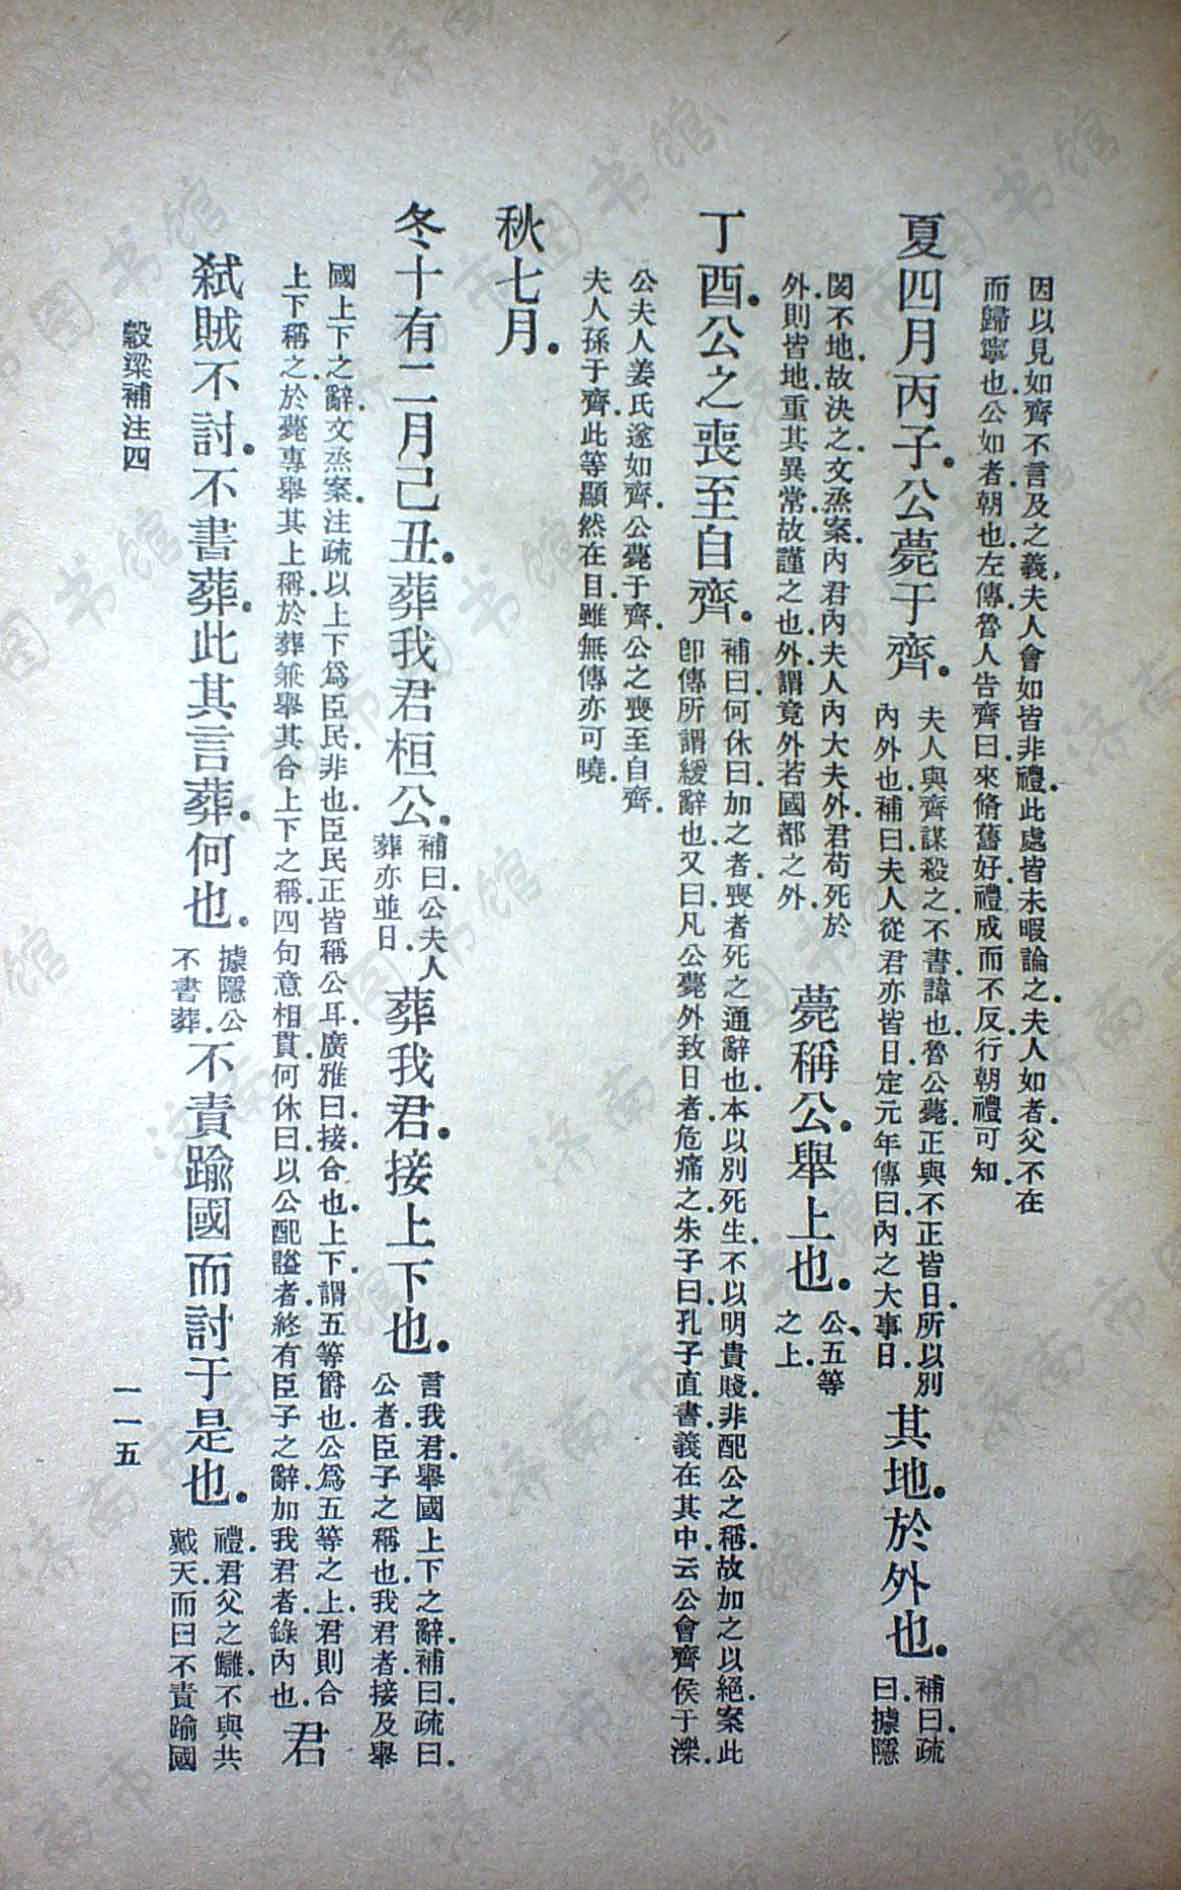 因以見如齊不言及之義夫人會如皆非禮此處皆未暇論之夫人如者父不在
而歸寧也公如者朝也左傳魯人告齊曰來脩舊好禮成而不反行朝禮可知
夏四月丙子公薨于齊夫人與齊謀殺之不書諱也魯公薨正與不正皆日所以別內外也補曰夫人從君亦皆日定元年傳曰內之大事日其地於外也補曰疏曰據隱
閔不地故決之文烝案內君內夫人內大夫外君苟死於外則皆地重其異常故謹之也外謂竟外若國都之外薨稱公舉上也公五等之上
丁酉公之喪至自齊補曰何休曰加之者喪者死之通辭也本以別死生不以明貴賤非配公之稱故加之以絕案此卽傳所謂緩辭也又曰凡公薨外致日者危痛之朱子曰孔子直書義在其中云公會齊侯于濼
公夫人姜氏遂如齊公薨于齊公之喪至自齊
夫人孫于齊此等顯然在目雖無傳亦可曉
秋七月
冬十有二月己丑葬我君桓公補曰公夫人葬亦並日葬我君接上下也言我君舉國上下之辭補曰疏曰公者臣子之稱也我君者接及舉
國上下之辭文烝案注疏以上下爲臣民非也臣民正皆稱公耳廣雅曰接合也上下謂五等爵也公爲五等之上君則合上下稱之於薨專舉其上稱於葬兼舉其合上下之稱四句意相貫何休曰以公配謚者終有臣子之辭加我君者錄內也君
弒賊不討不書葬此其言葬何也據隱公不書葬不責踰國而討于是也禮君父之讎不與共戴天而曰不責踰國
穀梁補注四
一一五